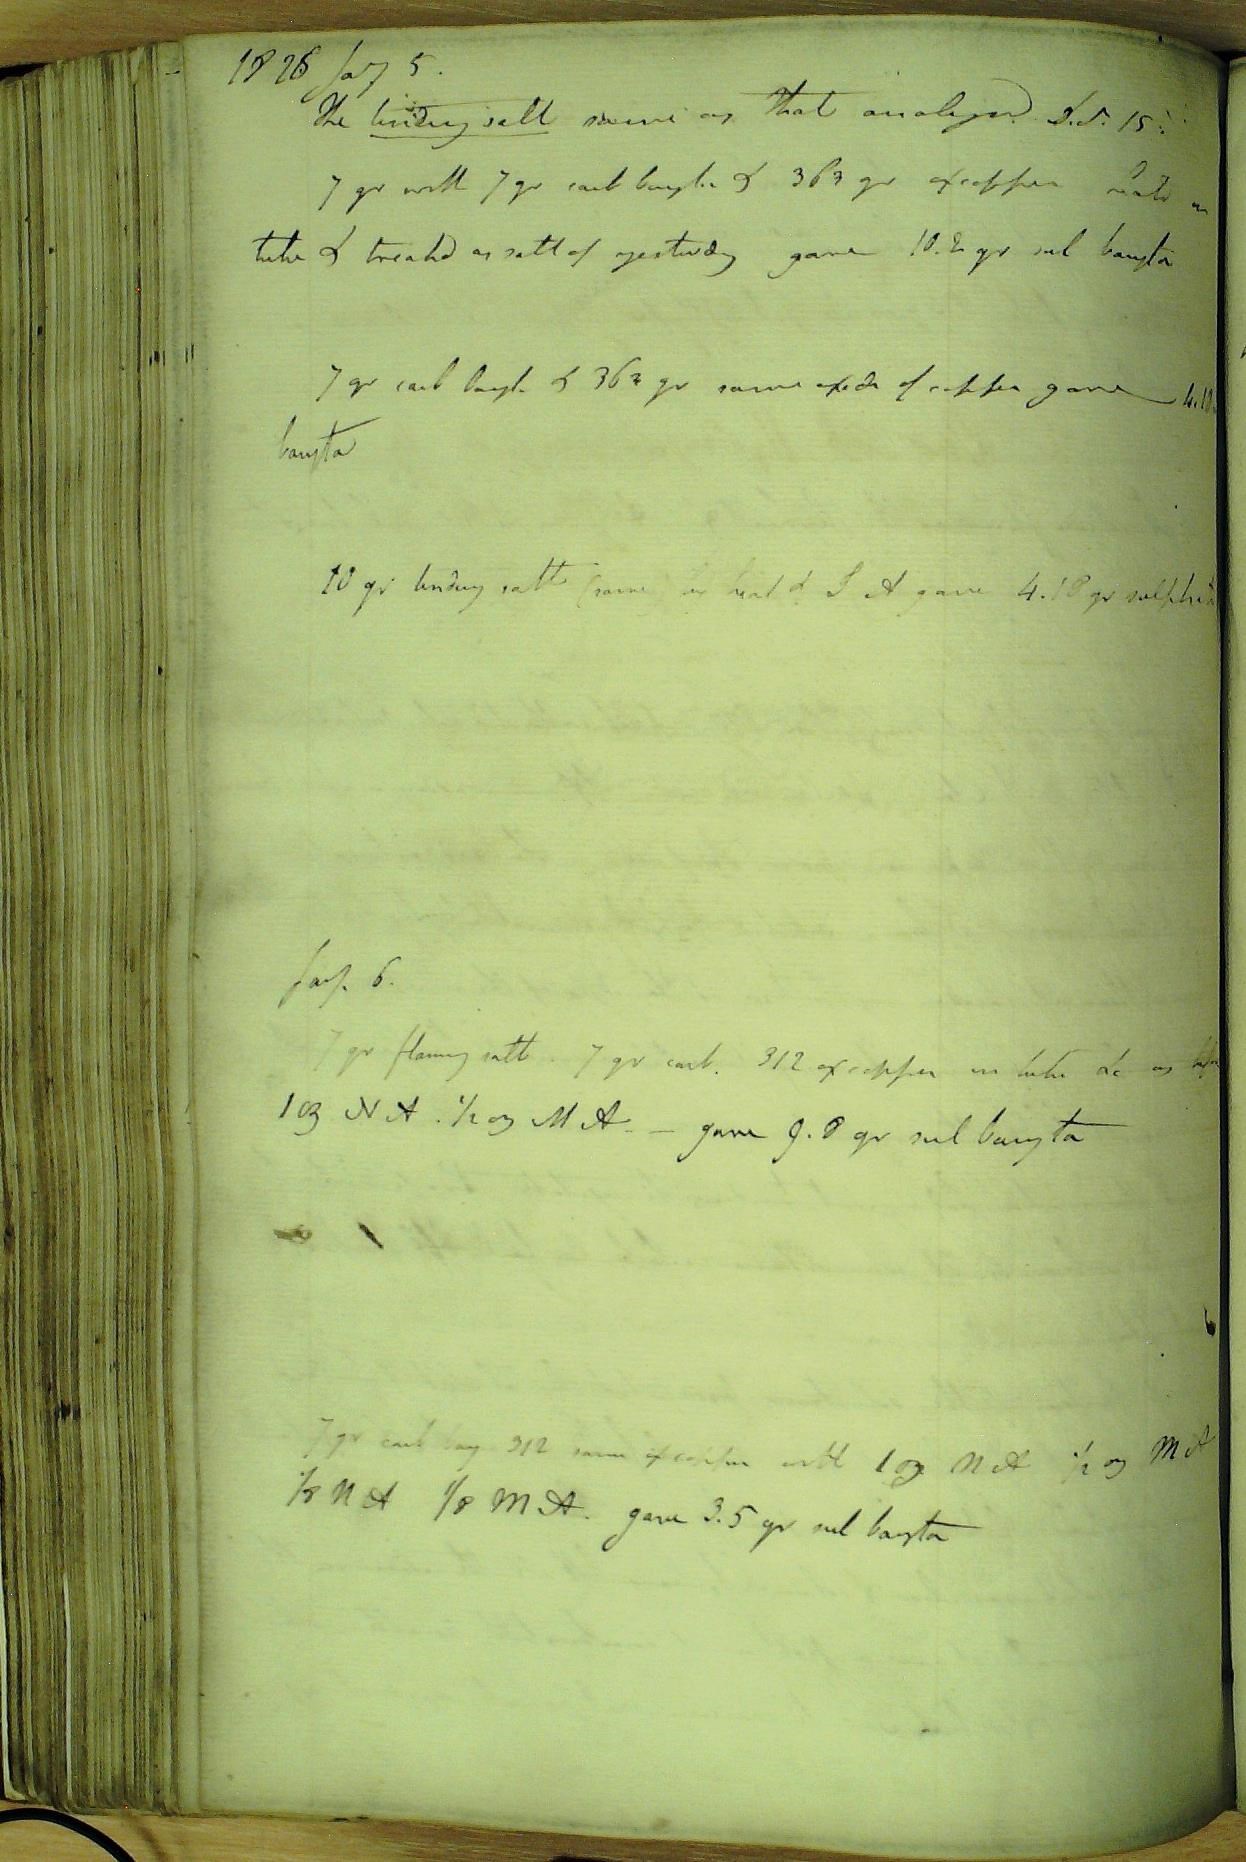 1826 Jany 5.
The tinding salt same as that analyzed
7 gr with 7 gr carb baryta & 363 gr ox copper heated in
tube & treated as salt of yesterday gave 10.2 gr sul baryta
7 gr carb baryta & 363 gr same oxide of copper gave 4.10
baryta
10 gr tinding salt (same) by heat & S A gave 4.18 gr
Jany. 6.
7 gr flaming salt. 7 gr carb. 312 ox copper in tube &c as
1 oz N A. 1/2 oz M A. — gave 9.8 gr sul baryta
7 gr carb bary 312 same ox copper with 1 oz N A 1/2 oz M A
1/8 N A 1/8 M A. gave 3.5 gr sul baryta